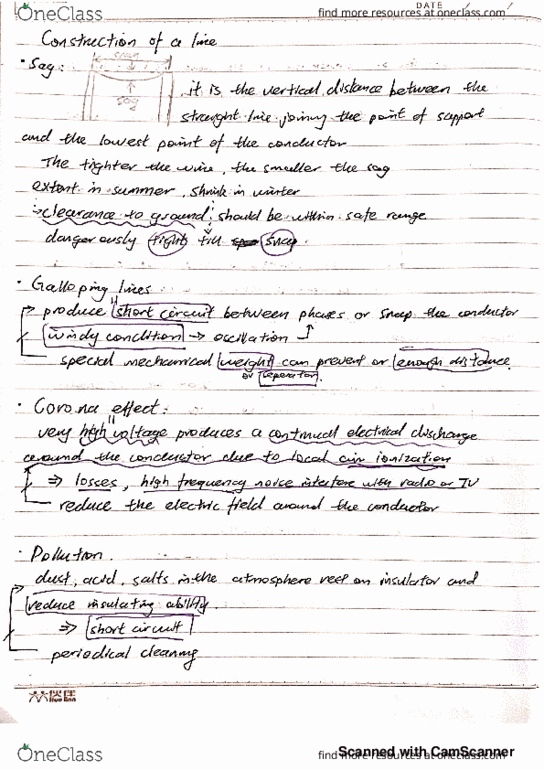 OneClass
DATE
find more resources at oneclass.com
Construction of a line
span
· Sag:
sag
it is the vertical distance between the
straight line joining the point of support
and the lowest point of the conductor
The tighter the wire, the smaller the sag
extent in summer, shrink in winter
clearance to ground: should be within safe range
dangerously tight till snap.
· Galloping lines
produce short circuit between phases or snap the conductor
windy condition → oscillation
special mechanical weight can prevent or enough distance.
or seperator.
· Corona effect:
very high voltage produces a continual electrical discharge
around the conductor due to local air ionization
⇒ losses, high frequency noise interfere with radio or TV
reduce the electric field around the conductor
· Pollution.
dust, acid, salts in the atmosphere rest on insulator and
reduce insulating ability.
⇒ short circuit
periodical cleaning
OneClass
find more resources at oneclass.com
Scanned with CamScanner